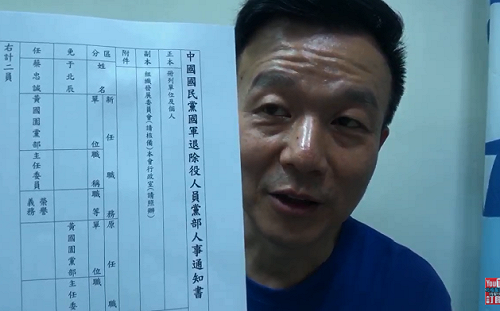 中國國民黨國軍退除役人員黨部人事通知書
正本 冊列單位及個人
副本 組織發展委員會(請核備)本會行政室(請照辦)
附件
區分 姓名 新任職務 原任職
單位 職稱 職等 單位 職
免 于北辰 黃國園黨部 主任委
任 蔡忠誠 黃國園黨部 主任委員 榮譽義務
右計二員
You